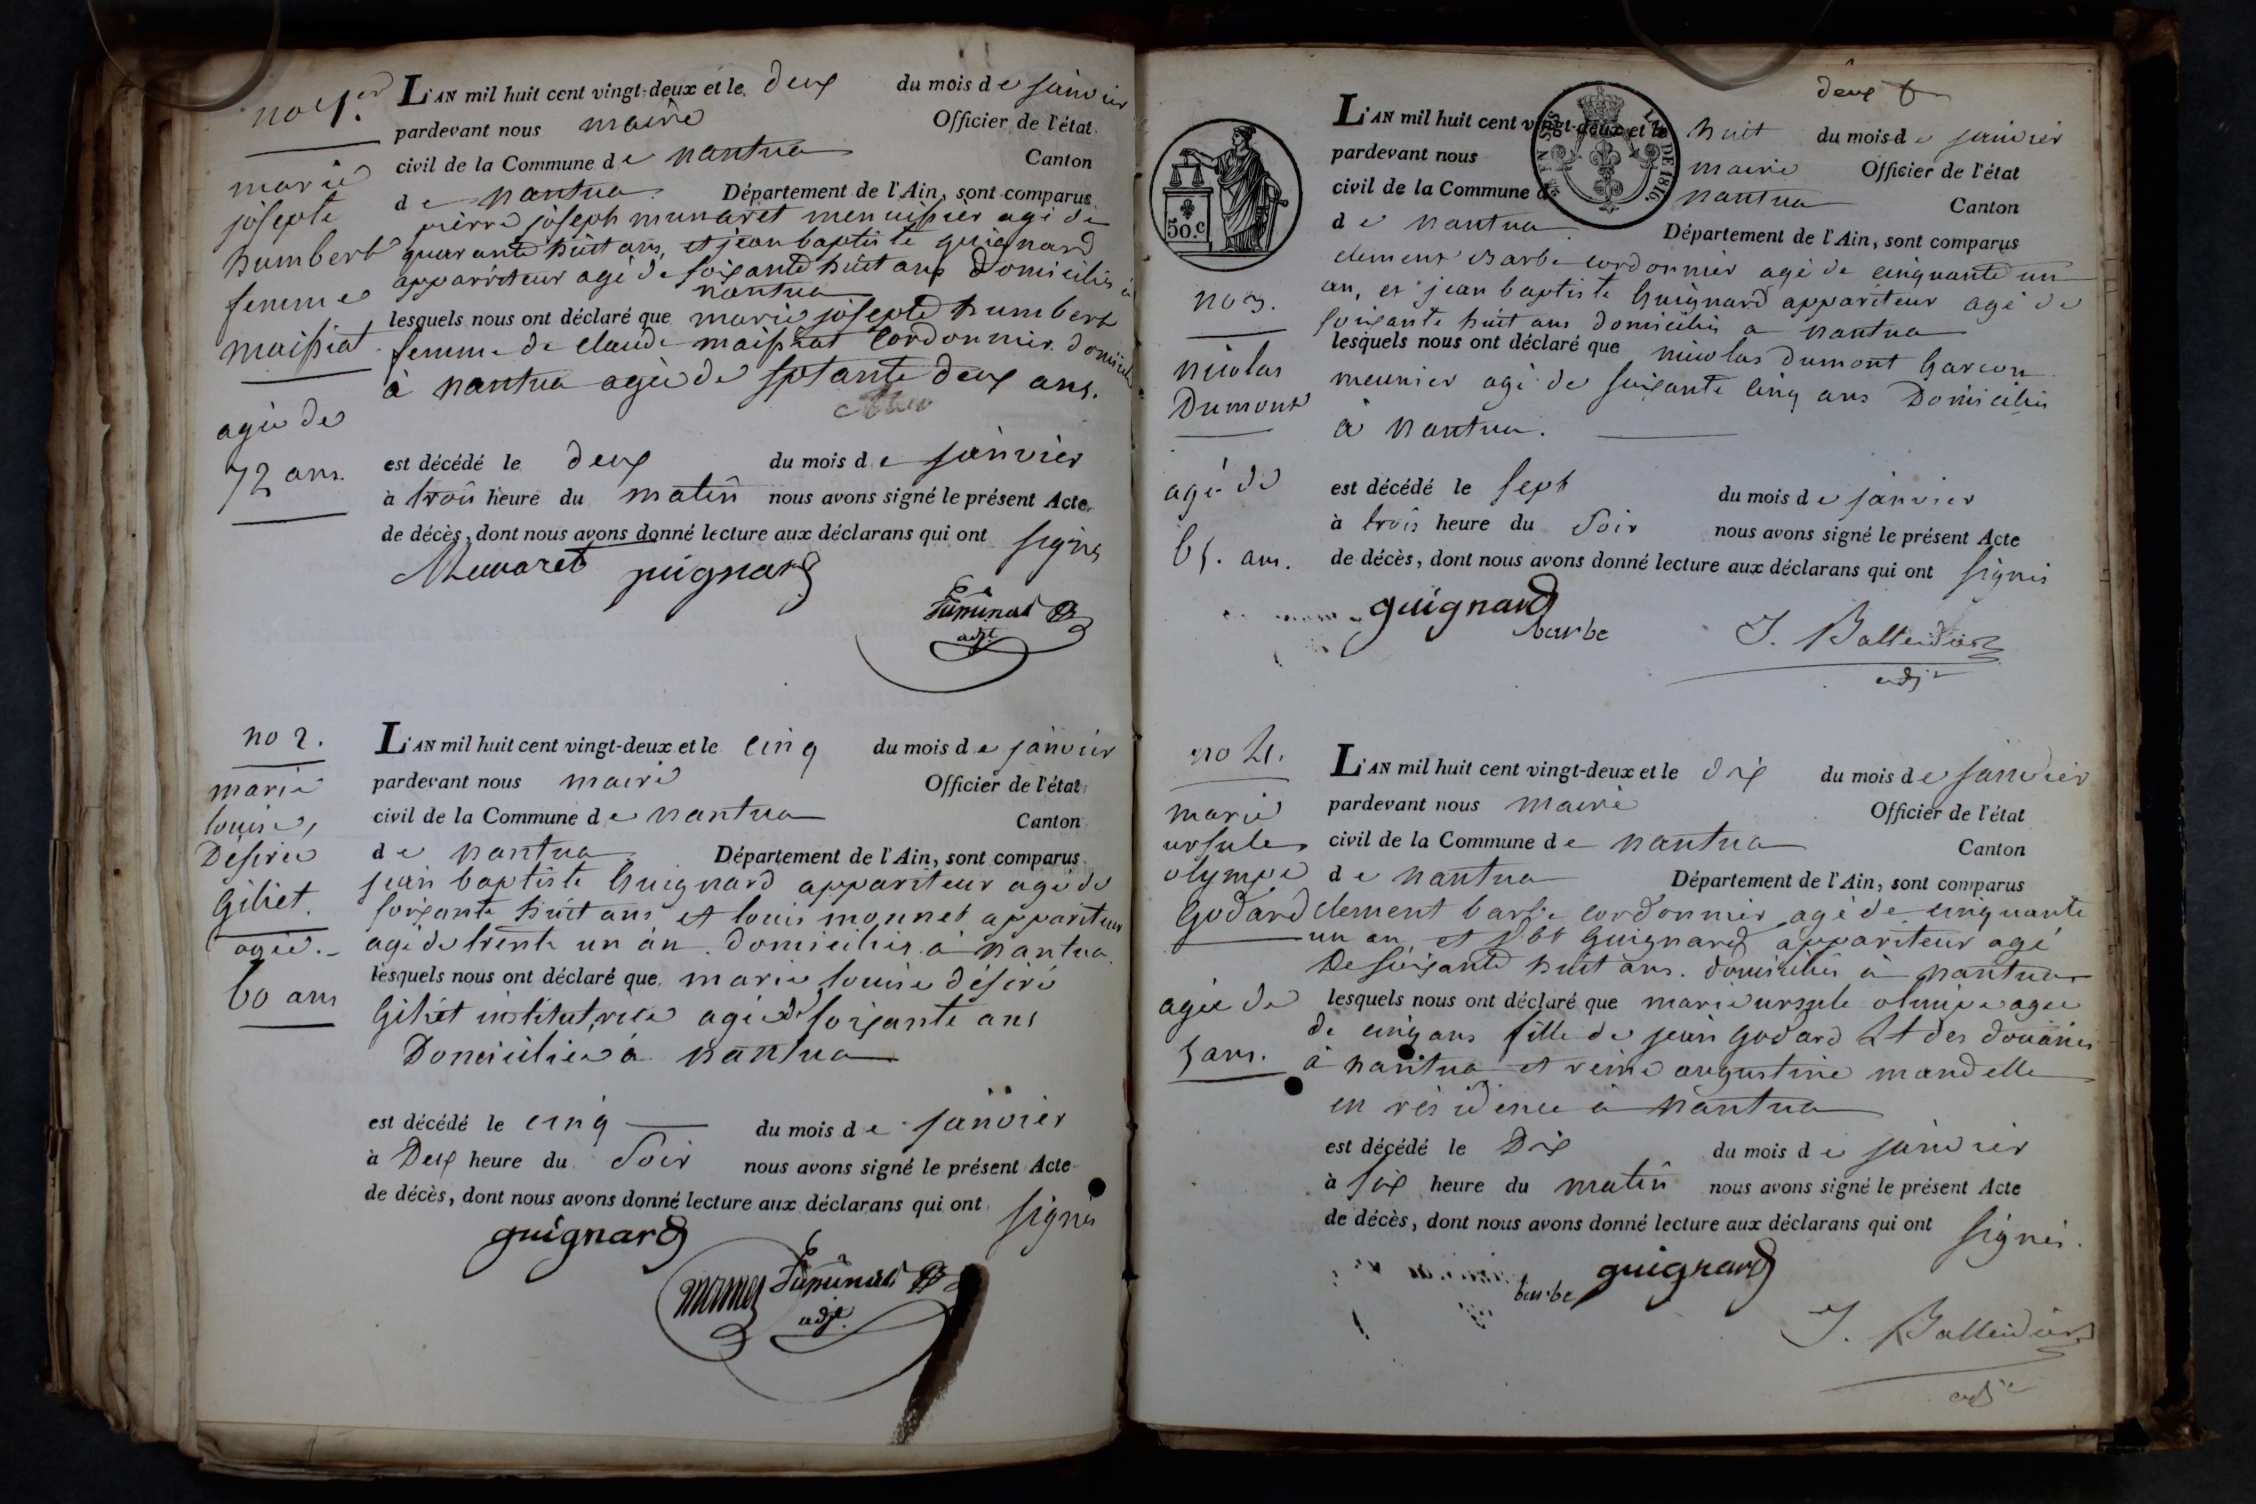 no 1.er
marie
josepte
humbert
femme
maissiat
agée de
72 ans
L'AN mil huit cent vingt-deux et le deux du mois de janvier
pardevant nous maire Officier de l'état
civil de la Commune de nantua Canton
de nantua Département de l'Ain, sont comparus
pierre joseph munaret menuisier agé de
quarante huit ans, et jean baptiste guignard
appariteur agé de soixante huit ans domiciliés à
nantua
lesquels nous ont déclaré que marie josepte humbert
femme de claude maissiat cordonnier domiciliée
à nantua agée de septante deux ans.
est décédé le deux du mois de janvier
à trois heure du matin nous avons signé le présent Acte
de décès, dont nous avons donné lecture aux déclarans qui ont signés
Munaret guignard
adjt.
no 2.
marie
louise,
Désirée
Giliet.
agée.-
60 ans
L'AN mil huit cent vingt-deux et le cinq du mois de janvier
pardevant nous maire Officier de l'état
civil de la Commune de nantua Canton
de nantua Département de l'Ain, sont comparus
jean baptiste Guignard appariteur agé de
soixante huit ans et louis monnet appariteur
agé de trente un an domiciliés à nantua
lesquels nous ont déclaré que marie louise désiré
Giliet institutrice agée de soixante ans
Domiciliée à nantua
est décédé le cinq du mois de janvier
à Deux heure du Soir nous avons signé le présent Acte
de décès, dont nous avons donné lecture aux déclarans qui ont signés
guignard
monnet
adjt.
deux
50.C
LOI DE 1816.
no 3.
nicolas
Dumont
agé de
65. ans.
L'AN mil huit cent vingt-deux et le huit du mois de janvier
pardevant nous maire Officier de l'état
civil de la Commune de nantua Canton
de nantua Département de l'Ain, sont comparus
clement Barbe cordonnier agé de cinquante un
an, et jean baptiste Guignard appariteur agé de
soixante huit ans domiciliés a nantua
lesquels nous ont déclaré que nicolas dumont Garcon
meunier agé de soixante cinq ans Domiciliés
à nantua.
est décédé le sept du mois de janvier
à trois heure du Soir nous avons signé le présent Acte
de décès, dont nous avons donné lecture aux déclarans qui ont signés
guignard
barbe J.
adjt
no 4.
marie
ursule
olympe
Godard
agée de
5 ans.
L'AN mil huit cent vingt-deux et le dix du mois de janvier
pardevant nous maire Officier de l'état
civil de la Commune de nantua Canton
de nantua Département de l'Ain, sont comparus
clement barbe cordonnier agé de cinquante
un an, et Guignard appariteur agé
De soixante huit ans. domiciliés à nantua
lesquels nous ont déclaré que marie ursule olimpe agee
de cinq ans fille de jean Godard Lt des douanes
à nantua et reine augustine mandelle
en résidence à nantua
est décédé le Dix du mois de janvier
à six heure du matin nous avons signé le présent Acte
de décès, dont nous avons donné lecture aux déclarans qui ont signés.
barbe guignard
J.
adjt